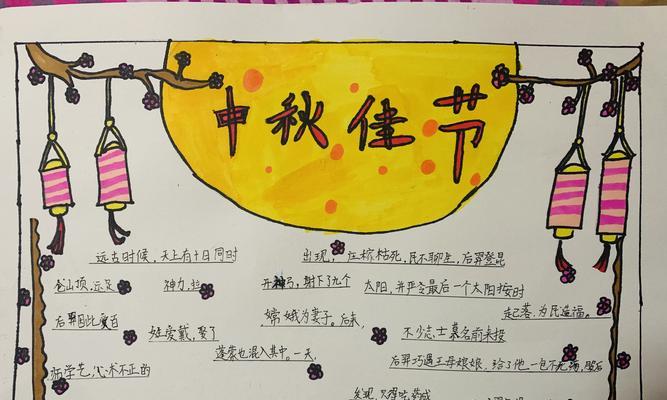 中秋佳节
远古时候,天上有十日同时
出现,庄稼枯死,民不聊生,后羿登昆
仑山顶,运足
神力,拉
开神弓,射下了九个
太阳,并严令最后一个太阳按时
起落,为民造福。
后羿因此受百
姓爱戴,娶了
嫦娥为妻子。后来,
不少志士慕名前来投
师学艺,心术不正的
蓬蒙也混入其中。一天,
后羿巧遇王母娘娘,给了他一包不死药,
发现,只得吃药成